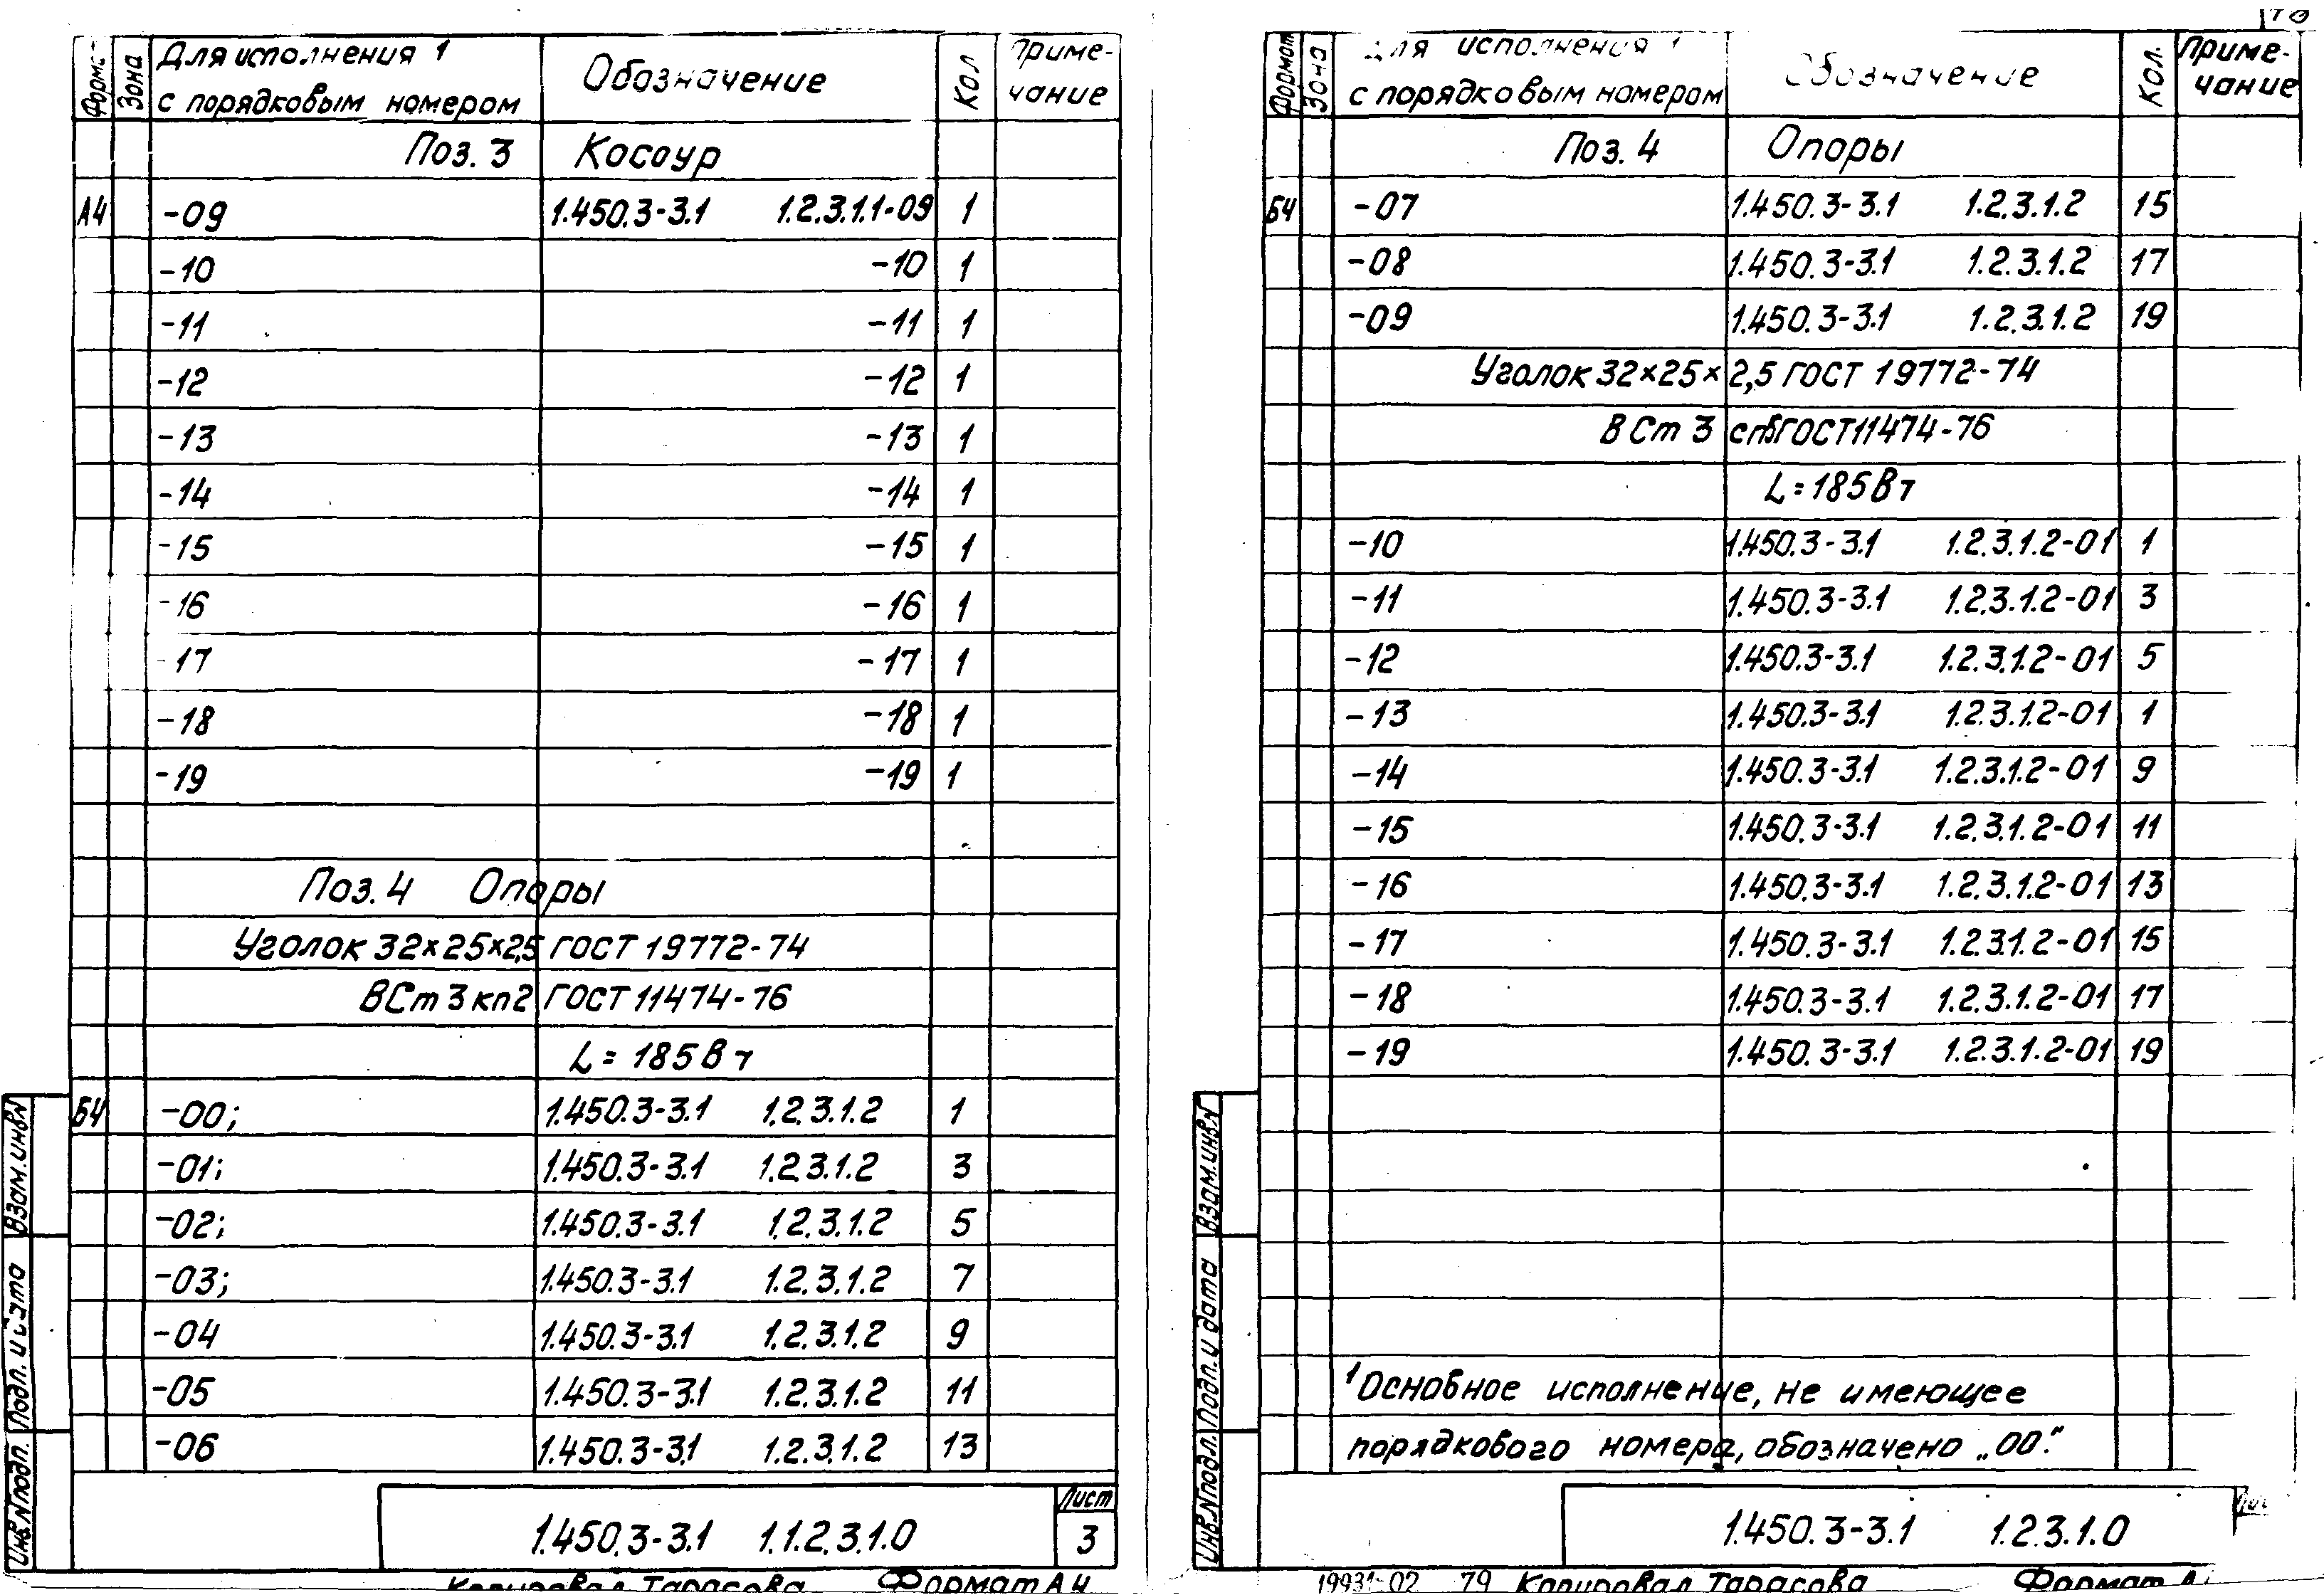 Зона Для исполнения 1 с порядковым номером Обозначение Кол Приме-
чание
Поз. 3 Косоур
А4 -09 1.450.3-3.1 1.2.3.1.1-09 1
-10 -10 1
-11 -11 1
-12 -12 1
-13 -13 1
-14 -14 1
-15 -15 1
-16 -16 1
-17 -17 1
-18 -18 1
-19 -19 1
Поз. 4 Опоры
Уголок 32×25×2,5 ГОСТ 19772-74
ВСт 3 кп2 ГОСТ 11474-76
L = 185
Б4 -00; 1.450.3-3.1 1.2.3.1.2 1
-01; 1.450.3-3.1 1.2.3.1.2 3
-02; 1.450.3-3.1 1.2.3.1.2 5
-03; 1.450.3-3.1 1.2.3.1.2 7
-04 1.450.3-3.1 1.2.3.1.2 9
-05 1.450.3-3.1 1.2.3.1.2 11
-06 1.450.3-3.1 1.2.3.1.2 13
Инв.N подл. Подп. и дата Взам.инв.N
1.450.3-3.1 1.1.2.3.1.0 Лист
3
Копировал Тарасова Формат А4
Формат Зона Для исполнения 1 с порядковым номером Обозначение Кол. Приме-
чание
Поз. 4 Опоры
Б4 -07 1.450.3-3.1 1.2.3.1.2 15
-08 1.450.3-3.1 1.2.3.1.2 17
-09 1.450.3-3.1 1.2.3.1.2 19
Уголок 32×25×2,5 ГОСТ 19772-74
ВСт 3 ГОСТ 11474-76
L = 185
-10 1.450.3-3.1 1.2.3.1.2-01 1
-11 1.450.3-3.1 1.2.3.1.2-01 3
-12 1.450.3-3.1 1.2.3.1.2-01 5
-13 1.450.3-3.1 1.2.3.1.2-01 1
-14 1.450.3-3.1 1.2.3.1.2-01 9
-15 1.450.3-3.1 1.2.3.1.2-01 11
-16 1.450.3-3.1 1.2.3.1.2-01 13
-17 1.450.3-3.1 1.2.3.1.2-01 15
-18 1.450.3-3.1 1.2.3.1.2-01 17
-19 1.450.3-3.1 1.2.3.1.2-01 19
¹Основное исполнение, не имеющее
порядкового номера, обозначено „00".
Инв.N подл. Подп. и дата Взам.инв.N
1.450.3-3.1 1.2.3.1.0
19931-02 79 Копировал Тарасова Формат